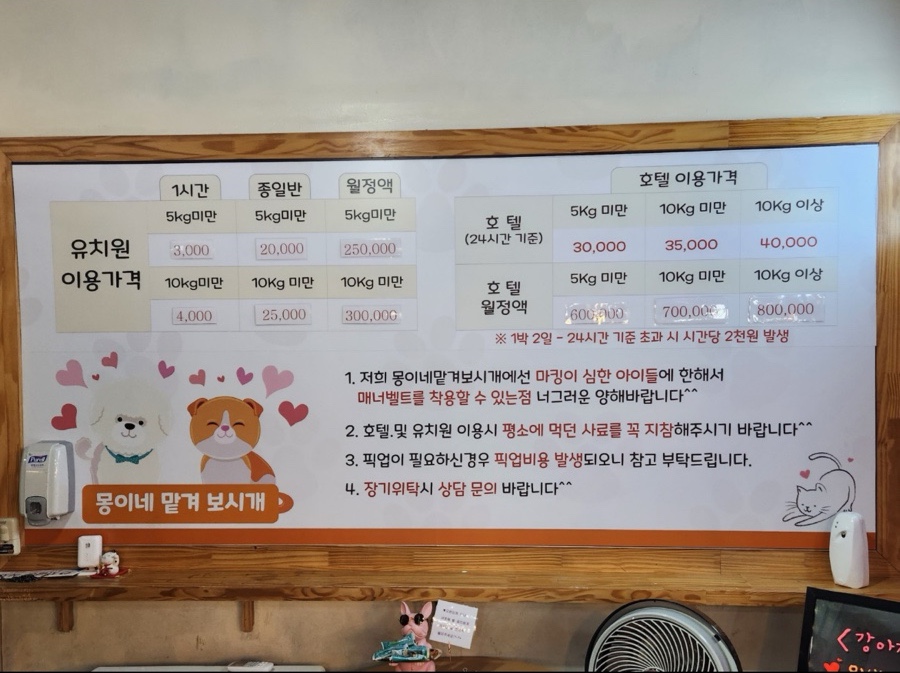 1시간 종일반 월정액
유치원
이용가격
5kg미만 5kg미만 5kg미만
3,000 20,000 250,000
10kg미만 10Kg 미만 10Kg 미만
4,000 25,000 300,000
호텔 이용가격
호 텔
(24시간 기준)
5Kg 미만 10Kg 미만 10Kg 이상
30,000 35,000 40,000
호 텔
월정액
5Kg 미만 10Kg 미만 10Kg 이상
600,000 700,000 800,000
※ 1박 2일 - 24시간 기준 초과 시 시간당 2천원 발생
1. 저희 몽이네맡겨보시개에선 마킹이 심한 아이들에 한해서
매너벨트를 착용할 수 있는점 너그러운 양해바랍니다^^
2. 호텔.및 유치원 이용시 평소에 먹던 사료를 꼭 지참해주시기 바랍니다^^
3. 픽업이 필요하신경우 픽업비용 발생되오니 참고 부탁드립니다.
4. 장기위탁시 상담 문의 바랍니다^^
몽이네 맡겨 보시개
Purell
<강아